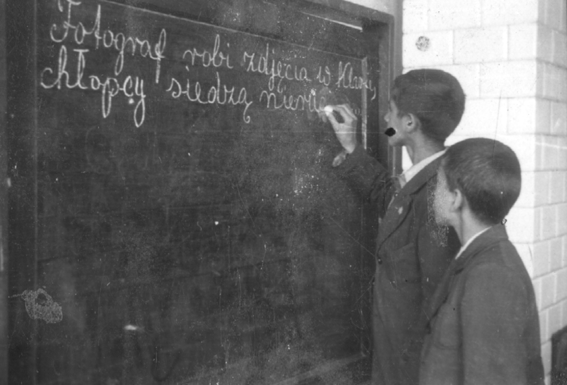 Fotograf robi zdjęcia w Klasie,
chłopcy siedzą nieru